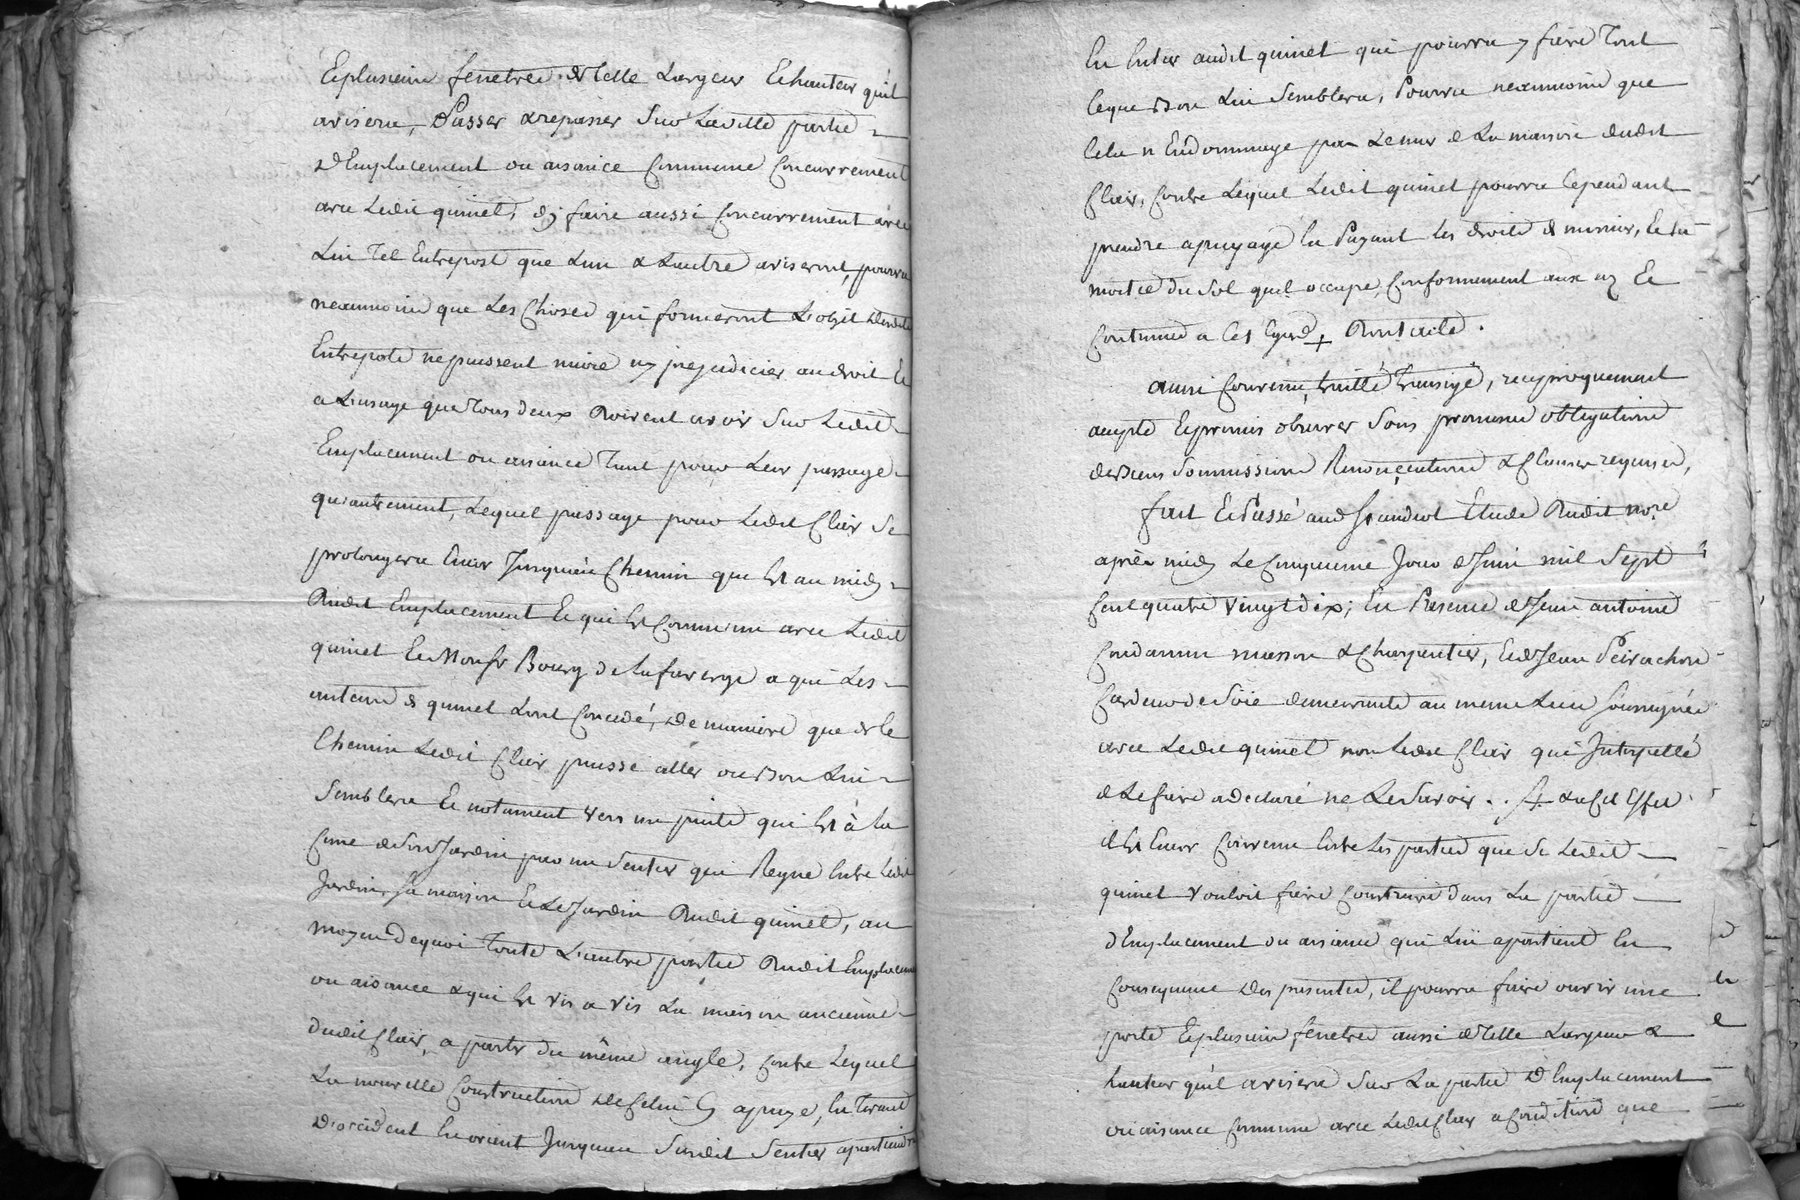 Et plusieurs fenetres de telle largeur Et hauteur qu'il
avisera, Passer & repasser Sur Laditte partie
d'Emplacement ou aisance Commune Concurrement
avec Ledit quinet, d'y faire aussi Concurrement avec
Lui Tel Entrepost que L'un & L'autre aviseront, pourvu
neanmoins que Les Choses qui formeront L'objet desdits
Entrepots ne puissent nuire ny prejudicier au droit Et
a L'usage que Tous deux doivent avoir Sur Ledit
Emplacement ou aisance Tant pour Leur passage
qu'autrement, Lequel passage pour Ledit Clair Se
prolongera Encor Jusqu'au Chemin qui Est au midy
dudit Emplacement Et qui Est Commun avec Ledit
quinet Et Monsr Bourg de Lafaverge a qui Les
auteurs de quinet L'ont Concedé, de maniere que de le
Chemin Ledit Clair puisse aller ou bon Lui
Semblera Et notament vers un puits qui Est à la
Cime de Son Jardin par un Sentier que Regne Entre Ledit
Jardin, Sa maison Et Le Jardin dudit quinet, au
moyen dequoi Toute L'autre partie dudit Emplacement
ou aisance & qui Est vis a vis La maison ancienne
dudit Clair, a partir du même angle, Contre Lequel
La nouvelle Construction de Celui Cy apuye, En Tirant
D'occident En orient Jusques Sundit Sentier apartiendra
En Entier audit quinet qui pourra y faire Tout
Ceque bon Lui Semblera, Pourvu neanmoins que
Cela n'Endommage pas Le mur de La maison dudit
Clair, Contre Lequel Ledit quinet pourra Cependant
prendre apuyage En Payant les droits de murier, Et La
moitié du Sol quil occupe, Conformement aux us Et
Coutumes a Cet Egard + dont acte.
ainsi Convenu, traitté transigé, reciproquement
accepté Et promis observer Sous promesses obligations
de biens Soumissions Renonciations & Clauses requises,
fait Et Passé aud Etude dudit nore
après midy Le Cinquieme Jour de Juin mil Sept
Cent quatre vingt dix; En Presence de Jean antoine
Condamin masson & Charpentier, Et de Jean Peirachon
Cardeur de Soie demeurants au meme Lieu Soussignés
avec Ledit quinet non Ledit Clair qui Interpellé
de Le faire a declaré ne Le Savoir. + à Cet Effet
il Est Encor Convenu Entre Les parties que Si Ledit
quinet vouloit faire Construire dans La partie
d'Emplacement ou aisance qui Lui apartient En
Consequence des presentes, il pourra faire ouvrir une
porte Et plusieurs fenetres aussi de telle Largeur &
hauteur qu'il avisera Sur La partie d'Emplacement
ou aisance Commune avec Ledit Clair a Condition que